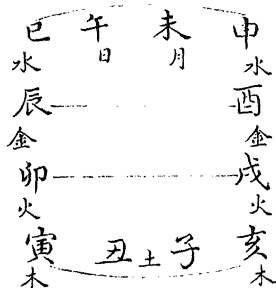 巳 午 未 申
水 日 月 水
辰 酉
金 金
卯 戌
火 火
寅 丑 土 子 亥
木 木